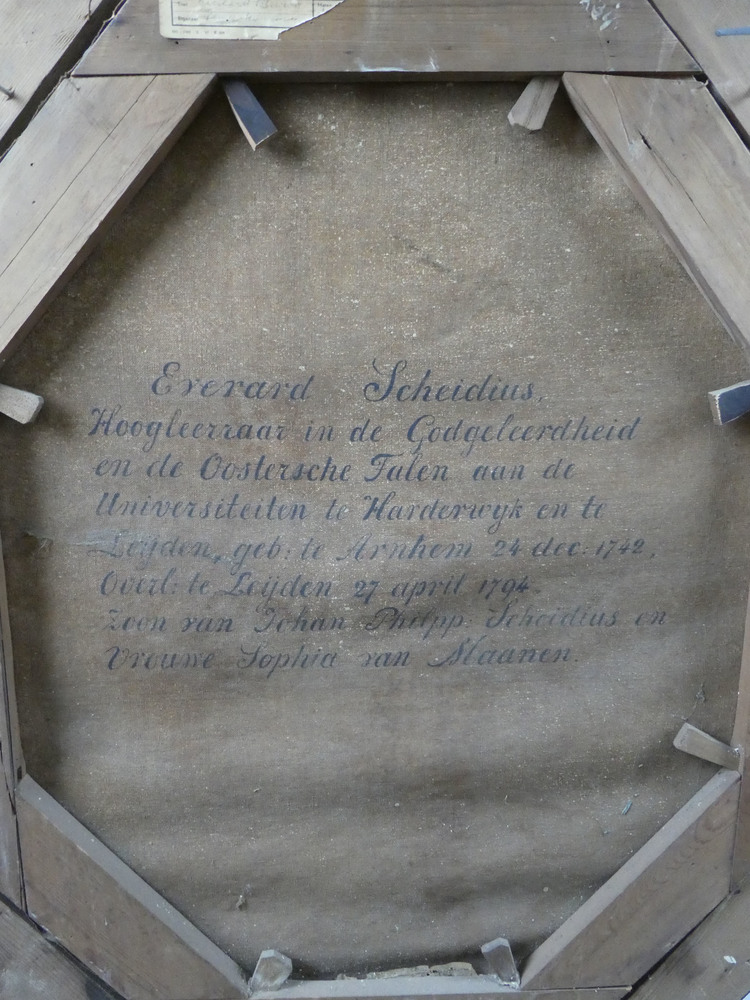 Everard Scheidius,
Hoogleeraar in de Godgeleerdheid
en de Oostersche Talen aan de
Universiteiten te Harderwyk en te
Leijden, geb: te Arnhem 24 dec: 1742,
Overl: te Leijden 27 april 1794.
Zoon van Johan Philpp: Scheidius en
Vrouwe Sophia van Maanen.